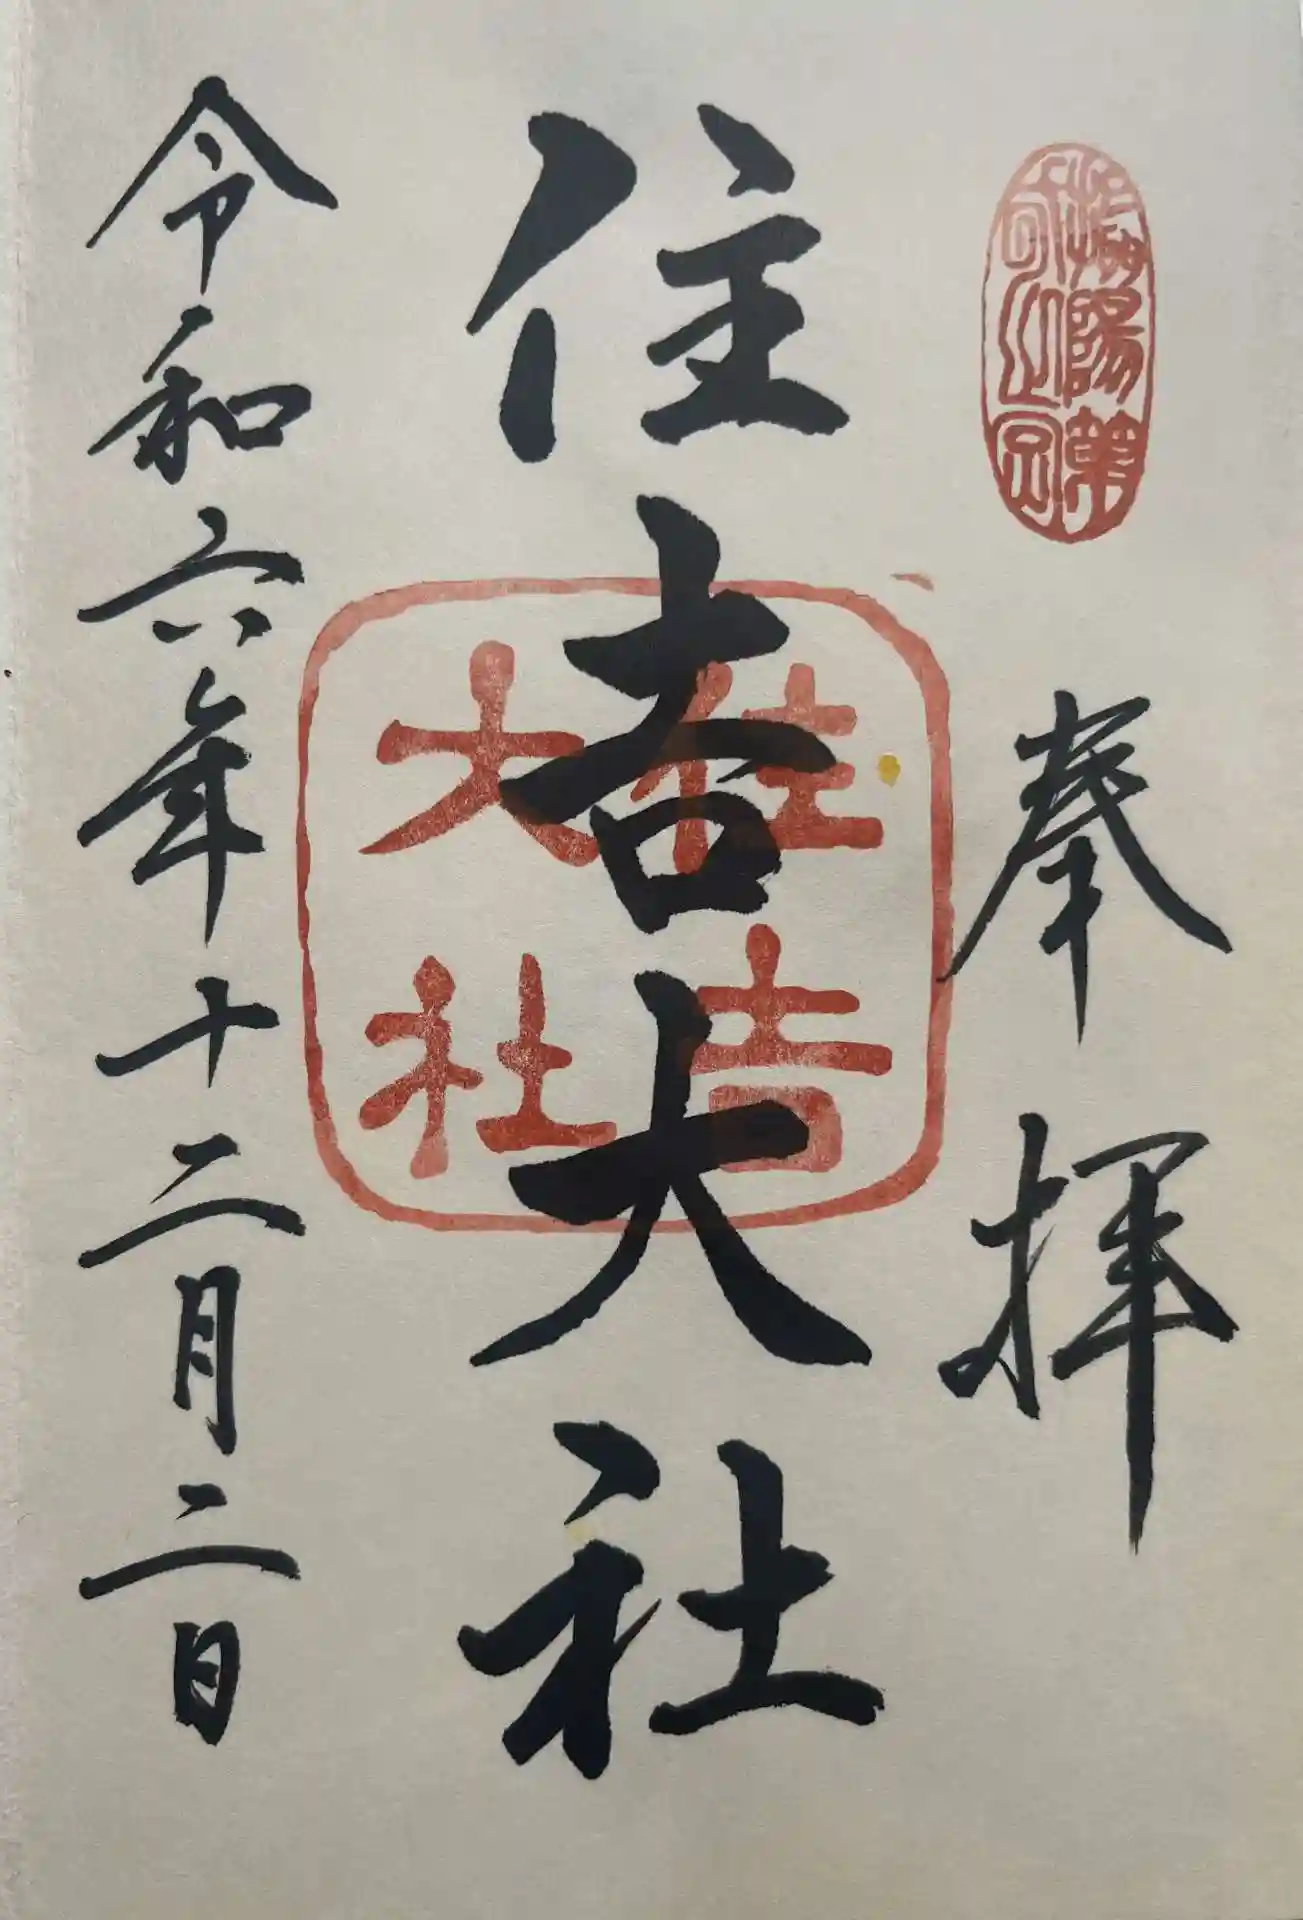 陽第
奉拝
住吉大社
住吉
大社
令和六年十二月二日